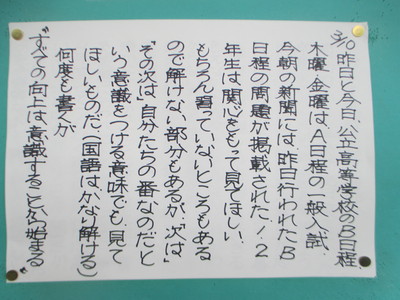 3/10 昨日と今日、公立高等学校のB日程、
木曜・金曜は、A日程の一般入試
今朝の新聞には、昨日行われたB
日程の問題が掲載された!2
年生は関心をもって見てほしい。
もちろん習っていないところもある
ので解けない部分もあるが、「次は」
「その次は」自分たちの番なのだと
いう意識をつける意味でも見て
ほしいものだ。(国語はかなり解ける)
何度も書くが
"すべての向上は、意識することから始まる"